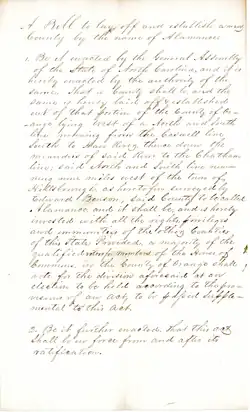 A Bill to lay off and establish a new
County by the name of Alamance
1. Be it enacted by the General Assembly
of the State of North Carolina, and it is
hereby enacted by the authority of the
same That a County shall be and the
same is hereby laid off & established
out of that portion of the County of O-
range lying West of a North and South
line running from the Caswell line
South to Haw River thence down the
meanders of said River to the Chatham
line; said North and South line run-
ning nine miles west of the town of
Hillsborough as heretofore surveyed by
Edward Benson, said County to be called
Alamance, and it shall be and is hereby
invested with all the rights, privileges
and immunities of the other Counties
of this State Provided, a majority of the
qualified voters of the House of
Commons, in the County of Orange shall
vote for the division aforesaid at an
election to be held according to the pro-
visions of an Act, to be passed supple-
mental to this Act.
2. Be it further enacted, That this act
shall be in force from and after its
ratification.